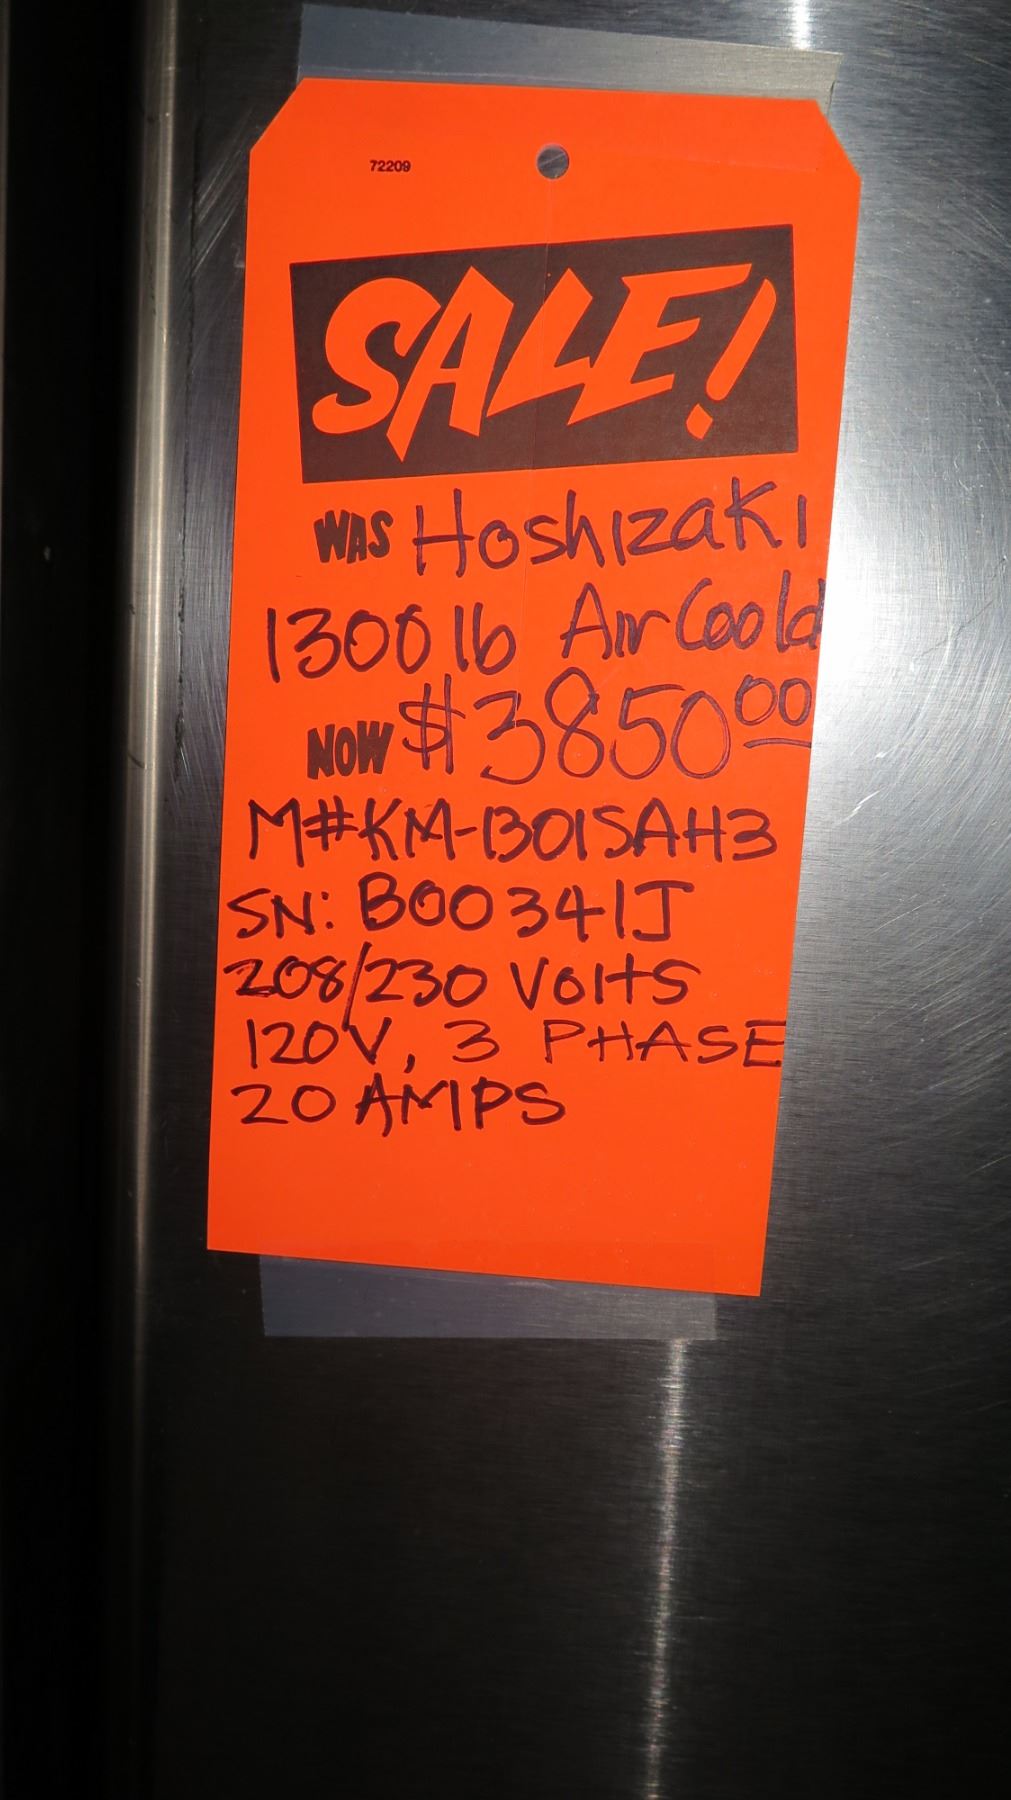 72209
SALE!
WAS Hoshizaki
1300 lb Air Coold
NOW $3850.00
M#KM-1301SAH3
SN: B00341J
208/230 Volts
120V, 3 PHASE
20 AMPS